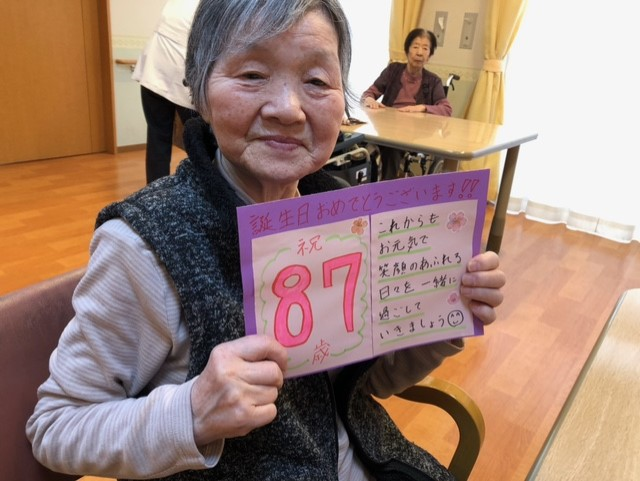 誕生日おめでとうございます!!
祝
87
歳
これからも
お元気で
笑顔のあふれる
日々を一緒に
過ごして
いきましょう